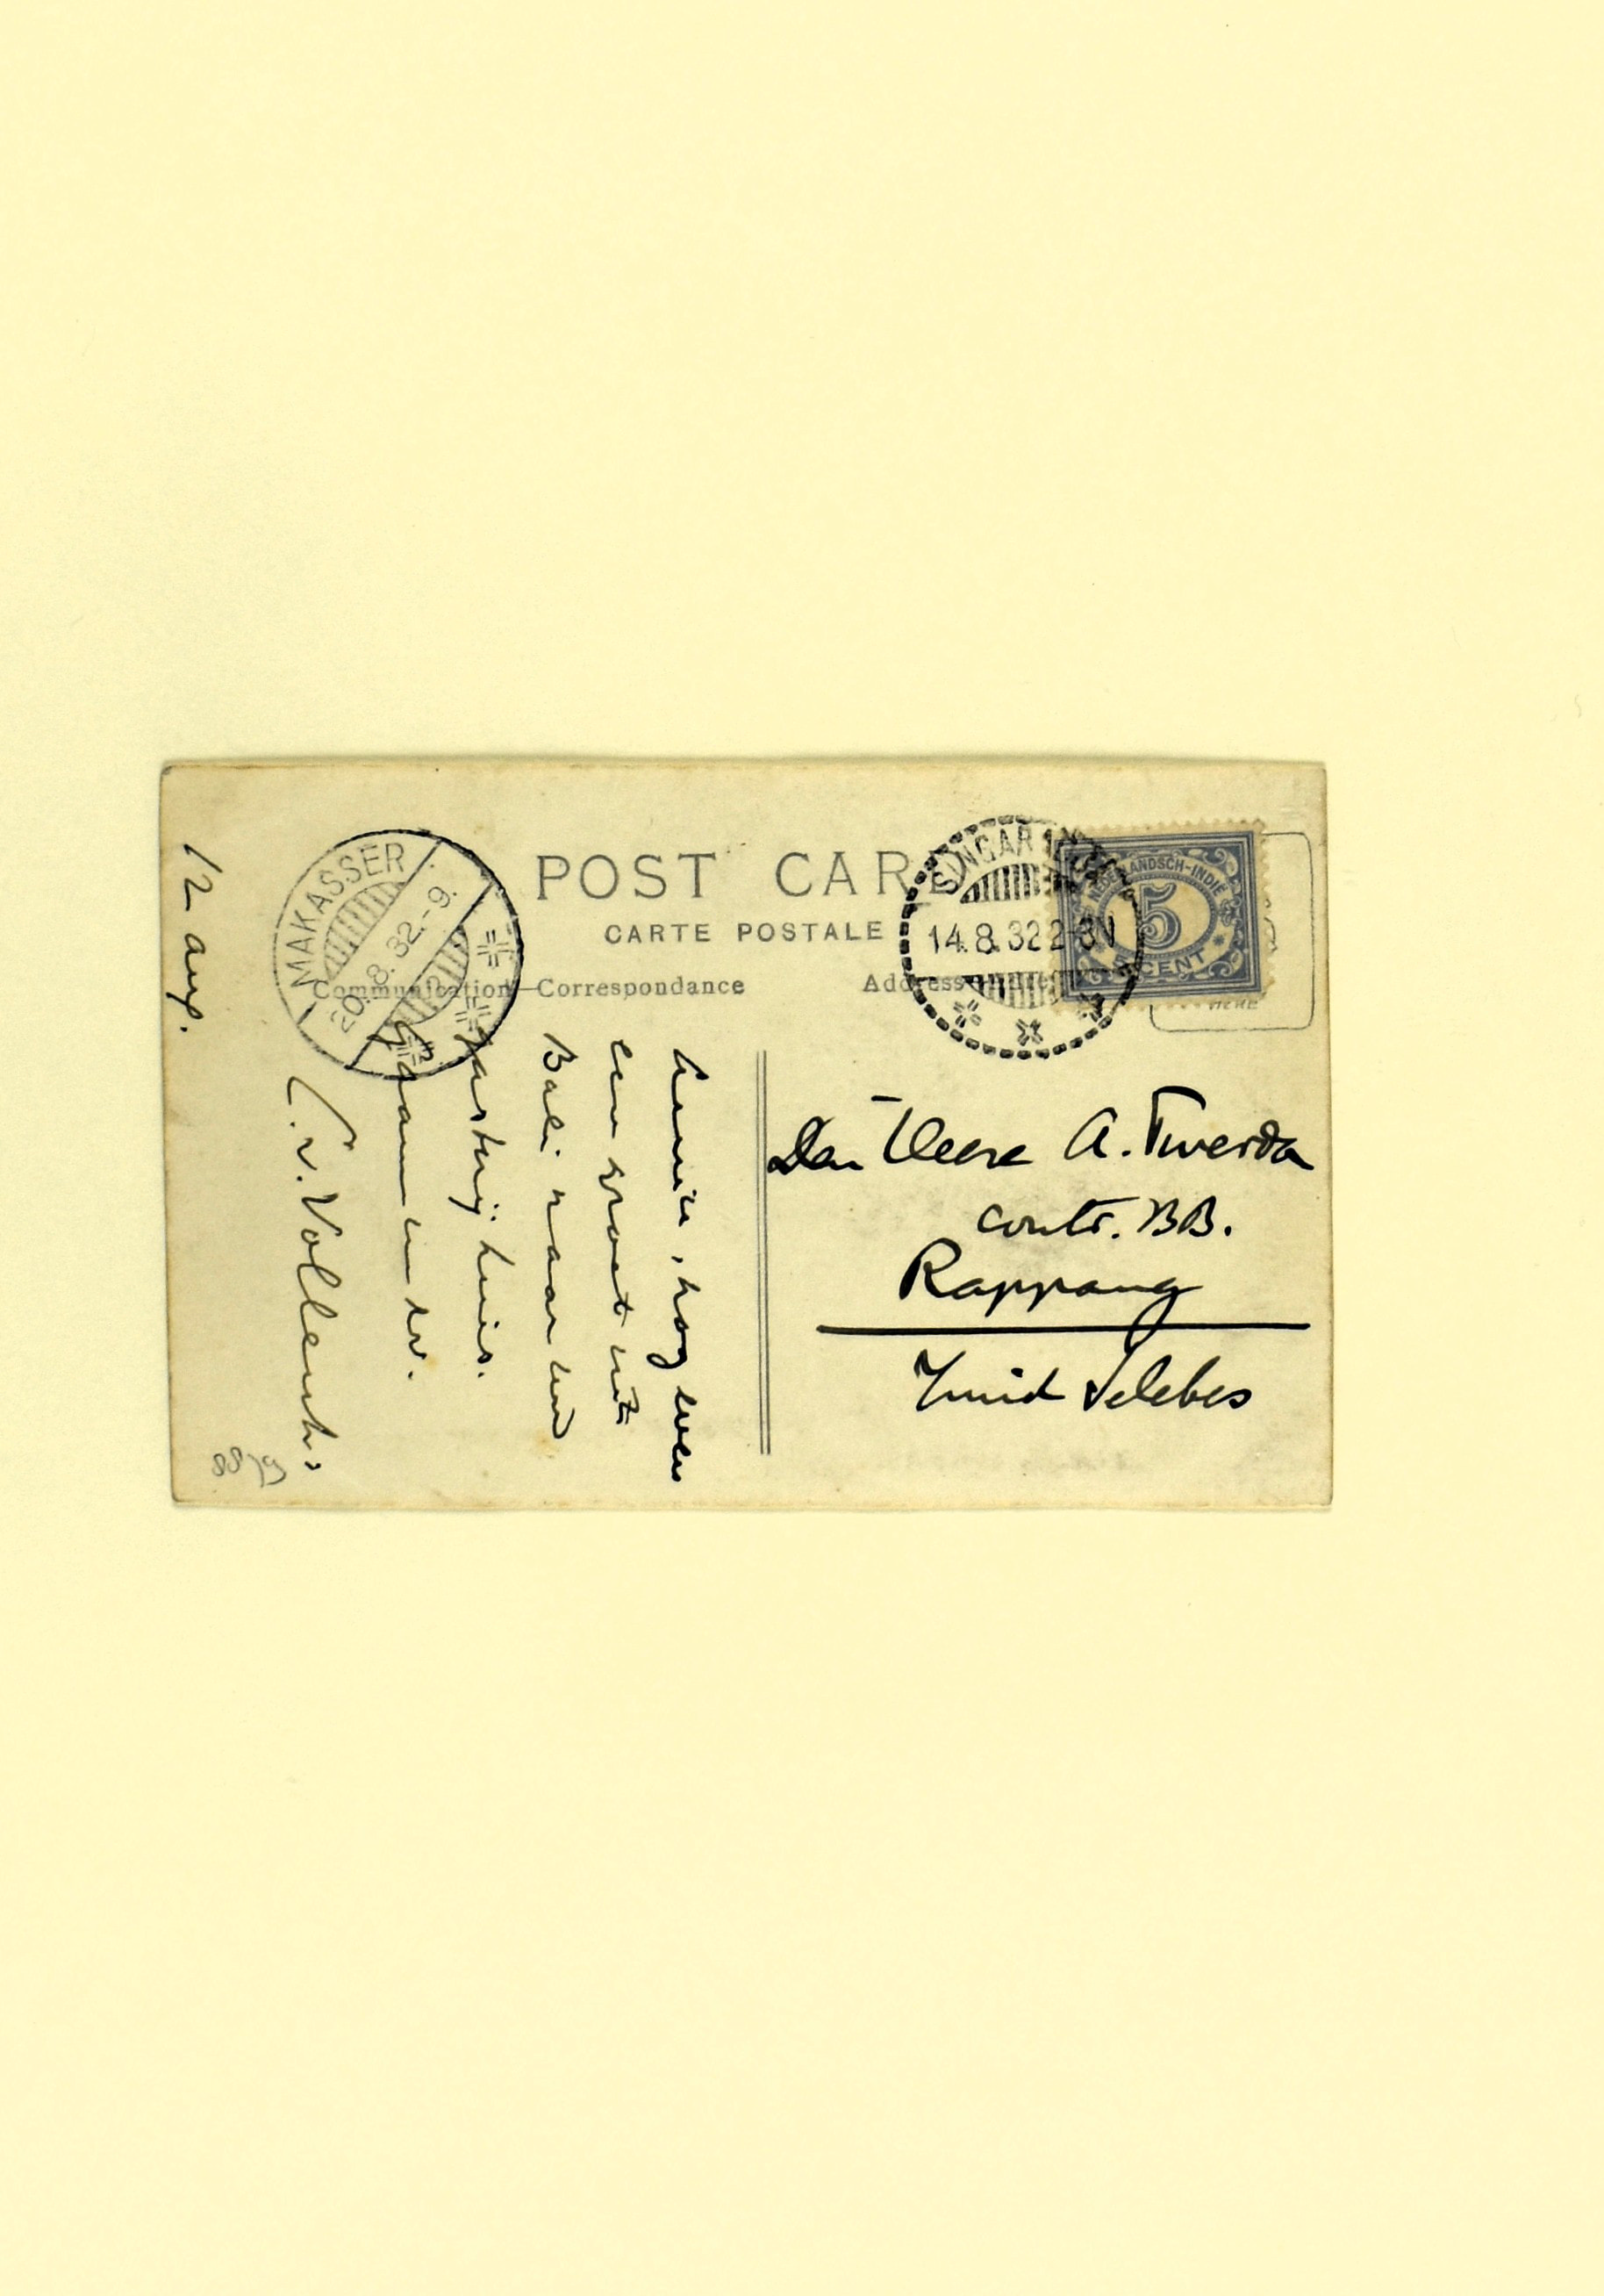 POST CARD
CARTE POSTALE
Communication—Correspondance
Address
HERE
MAKASSER
20.8.32.-9.
SINGARADJA
14.8.32 2-3N
NEDERLANDSCH-INDIË
5
5 CENT
Den Heere A. Twerda
contr. BB.
Rappang
Zuid Selebes
Amice, nog even
een groet uit
Bali naar uw
rastrij huis.
Gaan
C.v. Vollenh.
12 aug.